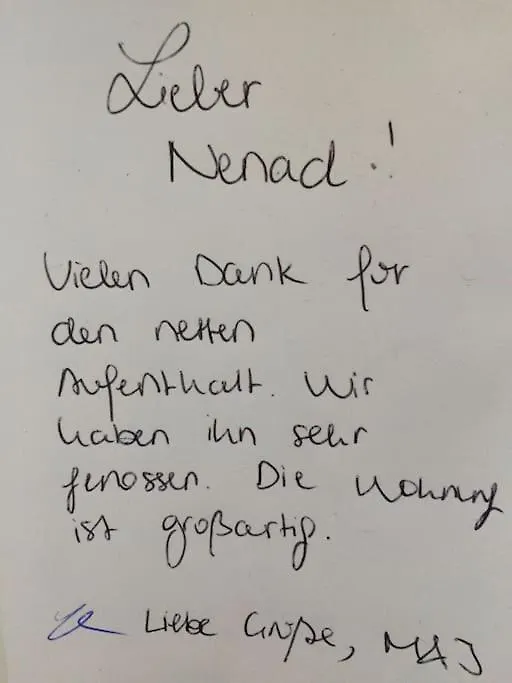 Lieber
Nenad!
Vielen Dank für
den netten
Aufenthalt. Wir
haben ihn sehr
genossen. Die Wohnung
ist großartig.
Liebe Grüße,